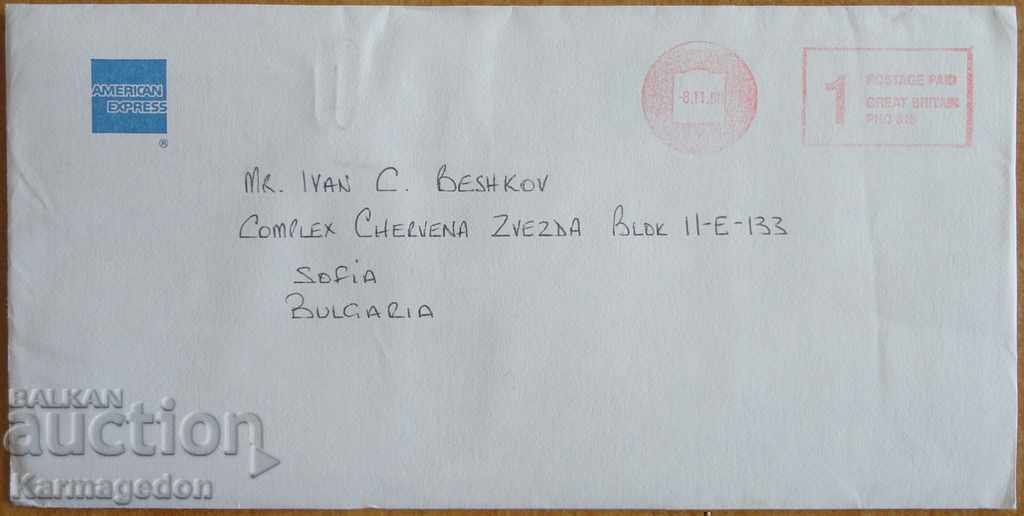 AMERICAN
EXPRESS
®
-8.11.
1
POSTAGE PAID
GREAT BRITAIN
MR. IVAN C. BESHKOV
COMPLEX CHERVENA ZVEZDA BLOK 11-E-133
SOFIA
BULGARIA
BALKAN
auction
Karmagedon